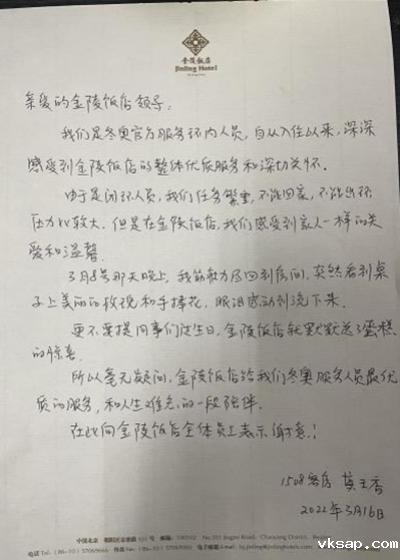 金陵饭店
Jinling Hotel
亲爱的金陵饭店领导:
我们是冬奥官方服务环内人员,自从入住以来,深深
感受到金陵饭店的整体优质服务和深切关怀。
由于是闭环人员,我们任务繁重,不能回家,不能出环
压力比较大,但是在金陵饭店,我们感受到家人一样的关
爱和温馨。
3月8号那天晚上,我筋疲力尽回到房间,突然看到桌
子上美丽的玫瑰和手捧花,眼泪感动到流下来。
更不要提同事们过生日,金陵饭店就默默送了蛋糕
的惊喜
所以毫无疑问,金陵饭店给我们冬奥服务人员最优
质的服务,和人生难忘的一段陪伴。
在此向金陵饭店全体员工表示谢意!
1508客房
2022年3月16日
中国北京
vksap.com